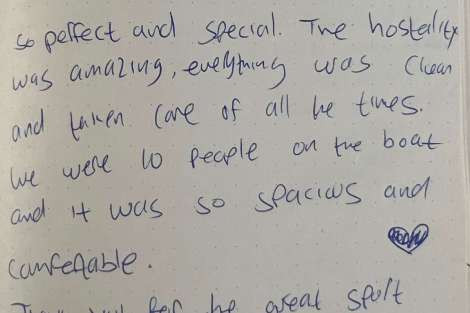 so perfect and special. The hostality
was amazing, everything was clean
and taken care of all he times.
We were 10 people on the boat
and it was so spacius and
comfetable.
for he great spult